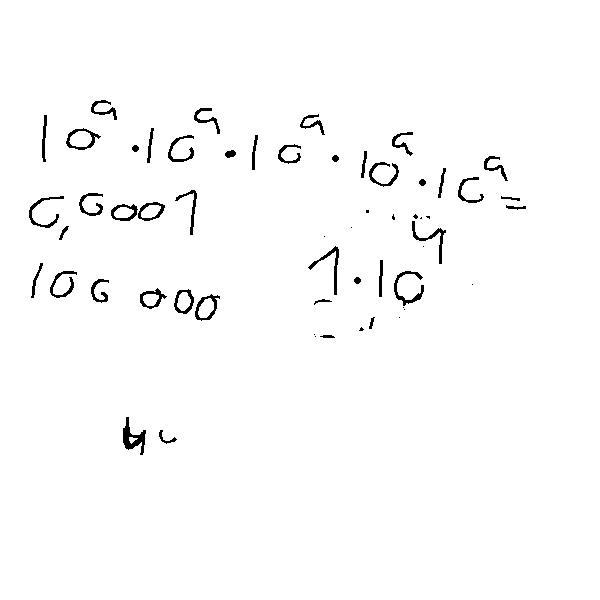 10^a · 10^a · 10^a · 10^a · 10^a =
0,0001
1 · 10^4
100 000